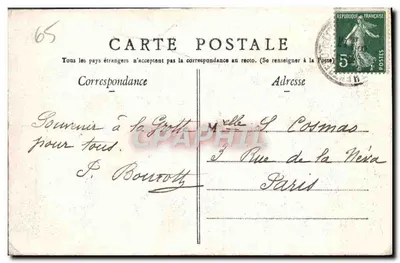 65
RÉPUBLIQUE FRANÇAISE
5c
POSTES
CARTE POSTALE
Tous les pays étrangers n'acceptent pas la correspondance au recto. (Se renseigner à la Poste)
Correspondance
Adresse
Souvenir à la
pour tous.
CPAPHIL
Mlle S. Cosmao
3 Rue de la Néva
Paris